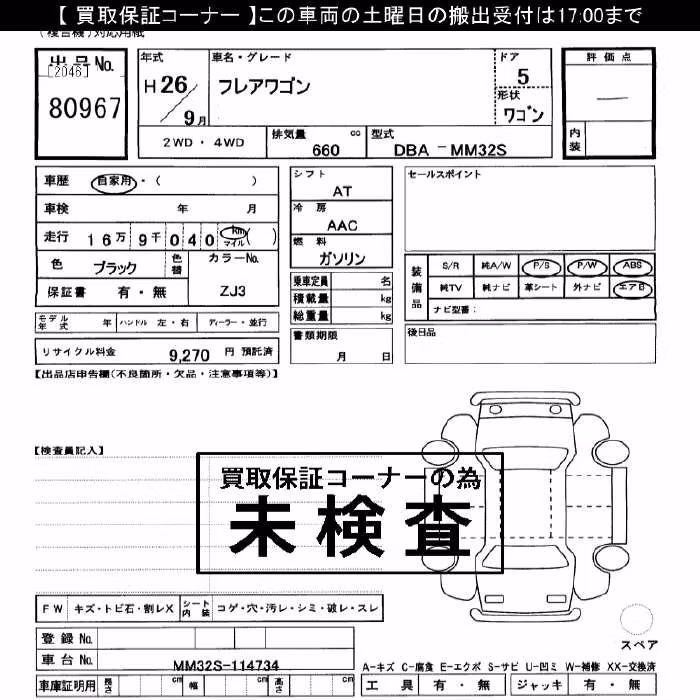 【 買取保証コーナー 】この車両の土曜日の搬出受付は17:00まで
(複合機)対応用紙
出品No.
[2046]
80967
年式
H 26
9月
車名・グレード
フレアワゴン
ドア
5
形状
ワゴン
評価点
—
内装
2WD・4WD
排気量 cc
660
型式
DBA-MM32S
車歴 自家用・( )
車検 年 月
走行 16万9千040 km マイル ( )
色 ブラック 色替
カラーNo.
ZJ3
保証書 有・無
モデル年式 年 ハンドル 左・右 ディーラー・並行
リサイクル料金 9,270 円 預託済
シフト
AT
冷房
AAC
燃料
ガソリン
乗車定員 名
積載量 kg
総重量 kg
書類期限
月 日
セールスポイント
装備品
S/R 純A/W P/S P/W ABS
純TV 純ナビ 革シート 外ナビ エアB
ナビ型番:
後日品
【出品店申告欄(不良箇所・欠品・注意事項等)】
【検査員記入】
買取保証コーナーの為
未検査
FW キズ・トビ石・割レX シート内装 コゲ・穴・汚レ・シミ・破レ・スレ
登録No.
車台No. MM32S-114734
車庫証明用 長さ cm 幅 cm 高さ cm
スペア
A-キズ C-腐食 E-エクボ S-サビ U-凹ミ W-補修 XX-交換済
工具 有・無 ジャッキ 有・無